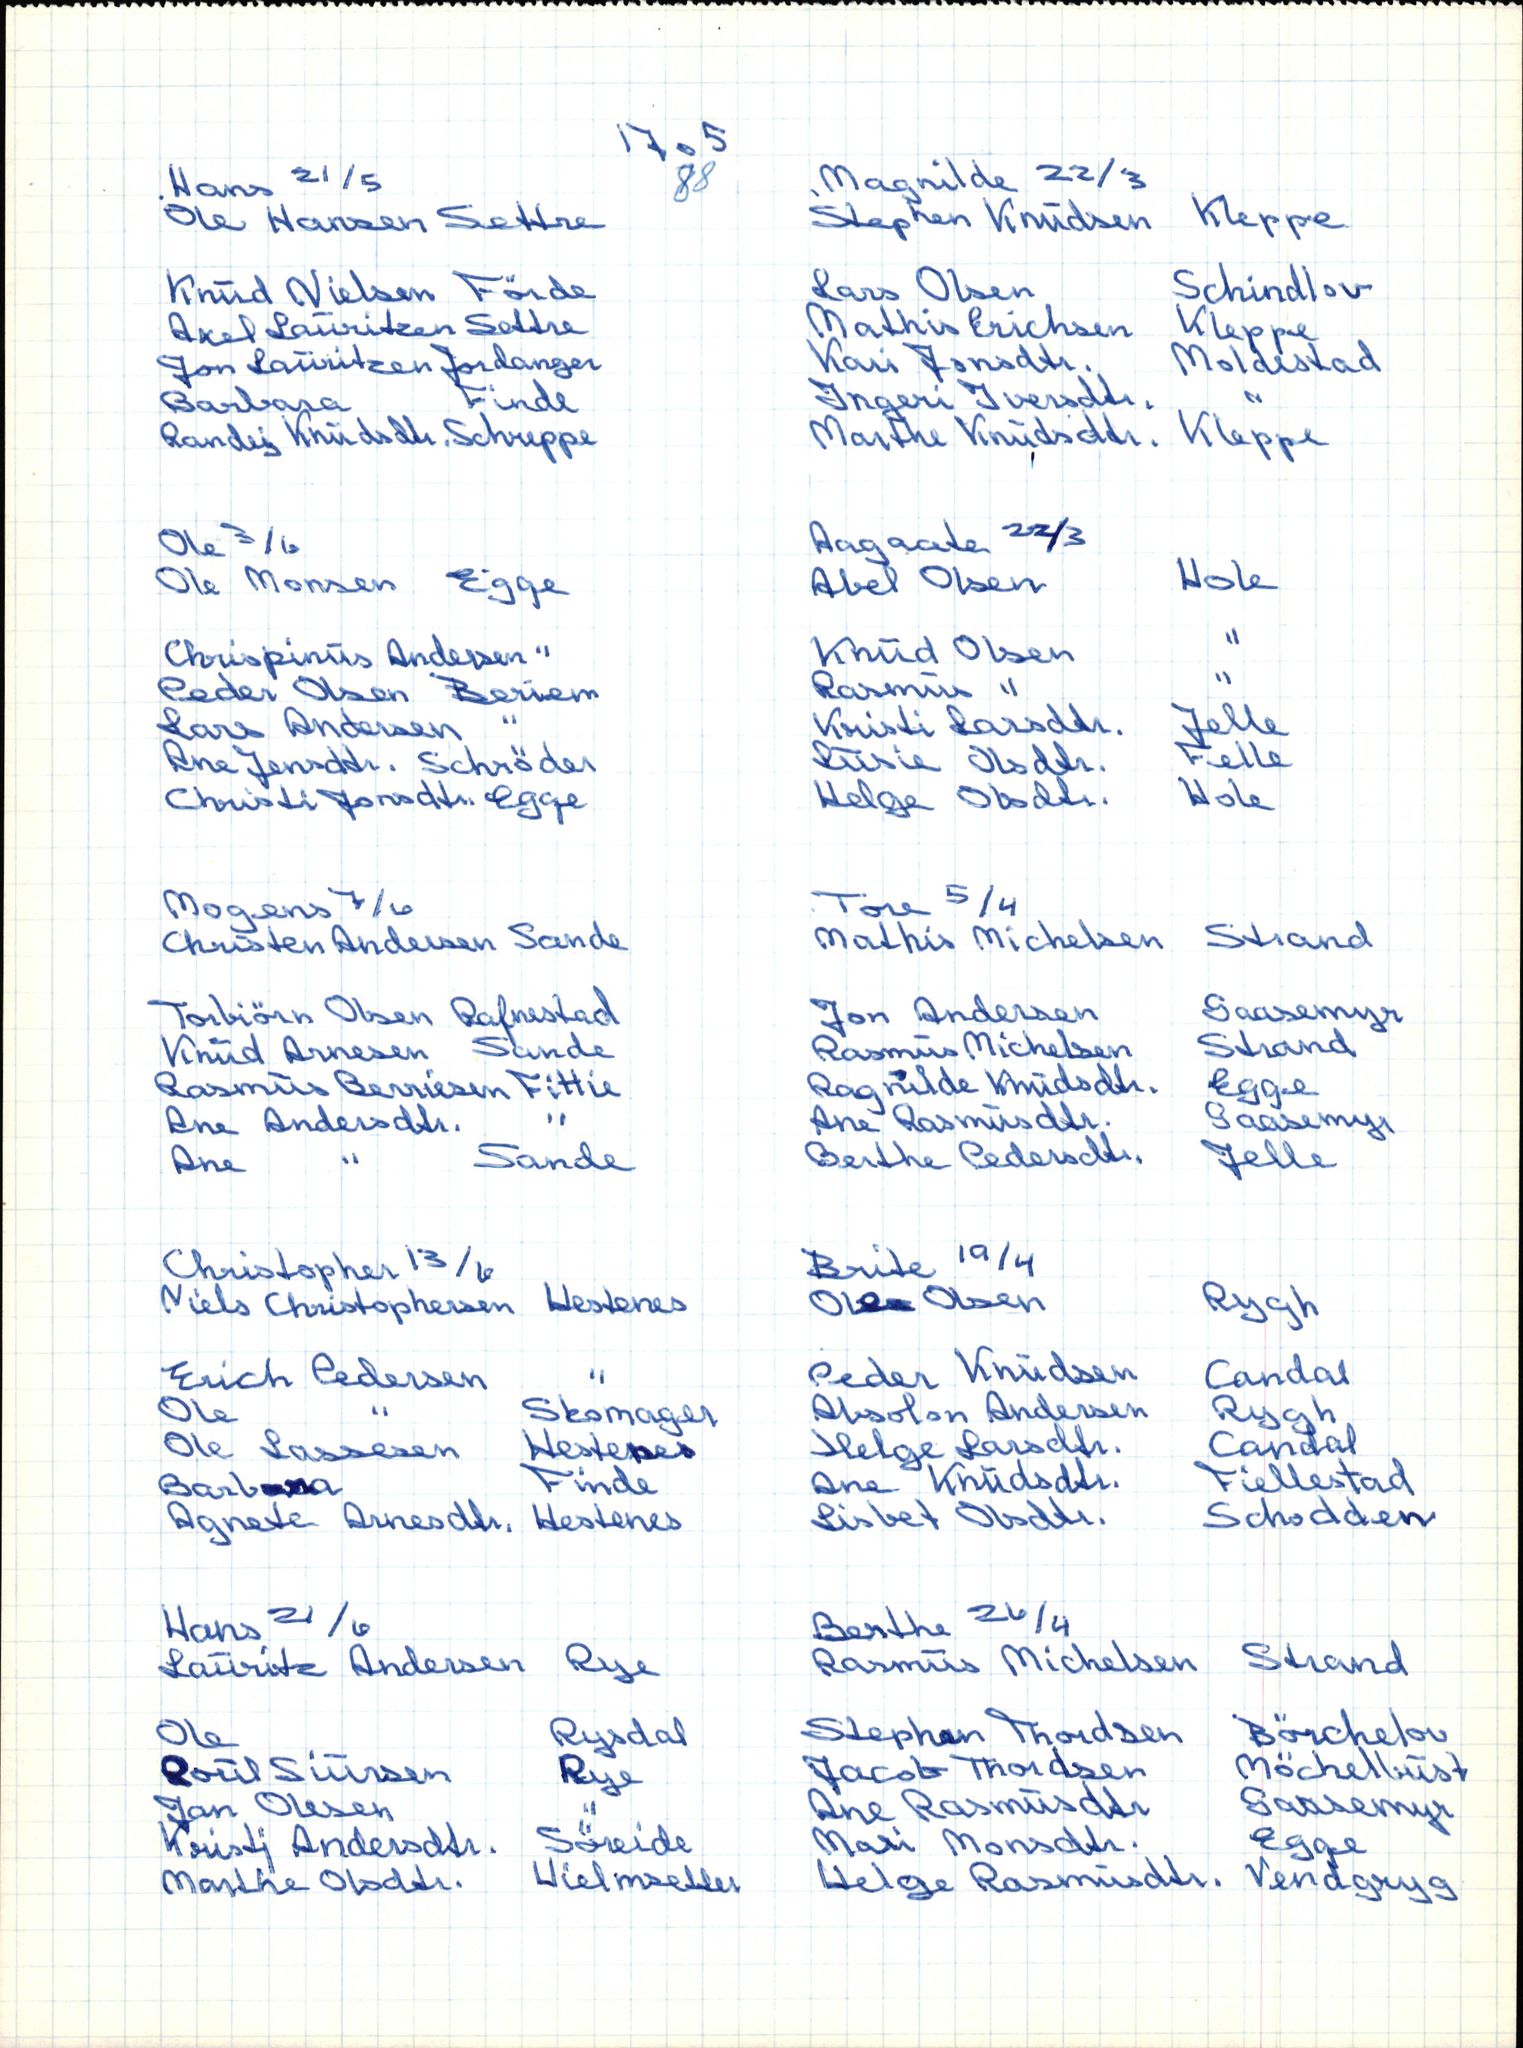 1705
88
Hans 21/5
Ole Hansen Settre
Knüd Nielsen Förde
Axel Laüritzen Settre
Jon Laüritzen Jordanger
Barbara Finde
Randej Knüdsdtr. Schreppe
Ole 3/6
Ole Monsen Egge
Chrispinüs Andersen "
Peder Olsen Beriem
Lars Andersen "
Ane Jensdtr. Schröder
Christi Jonsdtr. Egge
Mogens 7/6
Christen Andersen Sande
Torbiörn Olsen Rafnestad
Knüd Arnesen Sande
Rasmüs Berriesen Fittie
Ane Andersdtr. "
Ane " Sande
Christopher 13/6
Niels Christophersen Hestenes
Erich Pedersen "
Ole " Skomager
Ole Lassesen Hestenes
Barbara Finde
Agnete Arnesdtr. Hestenes
Hans 21/6
Laüritz Andersen Rye
Ole Rysdal
Poül Siürsen Rye
Jan Olesen "
Kristj Andersdtr. Söreide
Marthe Olsdtr. Hielmsetter
Magnilde 22/3
Stephen Knüdsen Kleppe
Lars Olsen Schindlov
Mathis Erichsen Kleppe
Kari Jonsdtr. Moldestad
Ingeri Iversdtr. "
Marthe Knüdsdtr. Kleppe
Aagaate 22/3
Abel Olsen Hole
Knüd Olsen "
Rasmüs " "
Kristi Larsdtr. Jelle
Lüsie Olsdtr. Felle
Helge Olsdtr. Hole
Tore 5/4
Mathis Michelsen Strand
Jon Andersen Gaasemyr
Rasmüs Michelsen Strand
Ragnilde Knüdsdtr. Egge
Ane Rasmüsdtr. Gaasemyr
Berthe Pedersdtr. Jelle
Brite 19/4
Ole Olsen Rygh
Peder Knüdsen Candal
Absolon Andersen Rygh
Helge Larsdtr. Candal
Ane Knüdsdtr. Fiellestad
Lisbet Olsdtr. Schodden
Berthe 26/4
Rasmüs Michelsen Strand
Stephen Thordsen Börchelov
Jacob Thordsen Möchelbüst
Ane Rasmüsdtr Gaasemyr
Mari Monsdtr. Egge
Helge Rasmüsdtr. Vendgryg